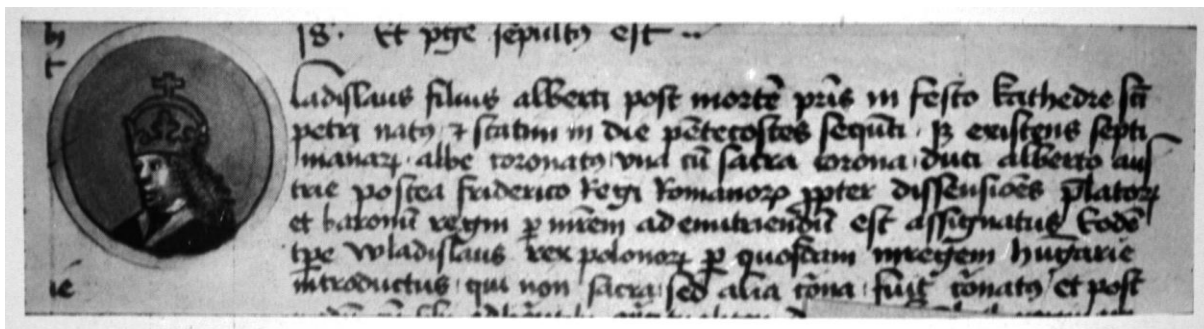 h
t
ie
18 · Et pȝte sepultꝰ est ··
Ladislaus filius alberti post mortē pris in festo kathedre scti
petri natꝰ ⁊ statim in die pētecostes sequēti · existens septi
manarꝝ · albe coronatꝰ vna cū sacra corona · duci alberto aus
trie postea friderico Regi Romanorꝝ ꝓpter dissensiōes p̄latorꝝ
et baronū regni ꝑ mr̄em ad enutriendū est assignatus Eodē
tp̄e wladislaus rex polonorꝝ ꝑ quosdam in regem hūgarie
introductus · qui non sacra · sed alia cōna · fuit cōnatꝰ et post